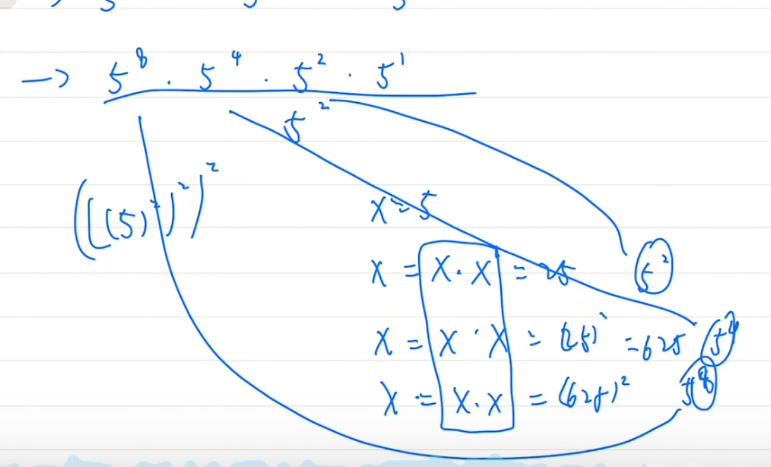 → 5⁸ · 5⁴ · 5² · 5¹
5²
(((5)²)²)²
x = 5
x = x · x = 25 5²
x = x · x = (25)² = 625 5⁴
x = x · x = (625)² 5⁸